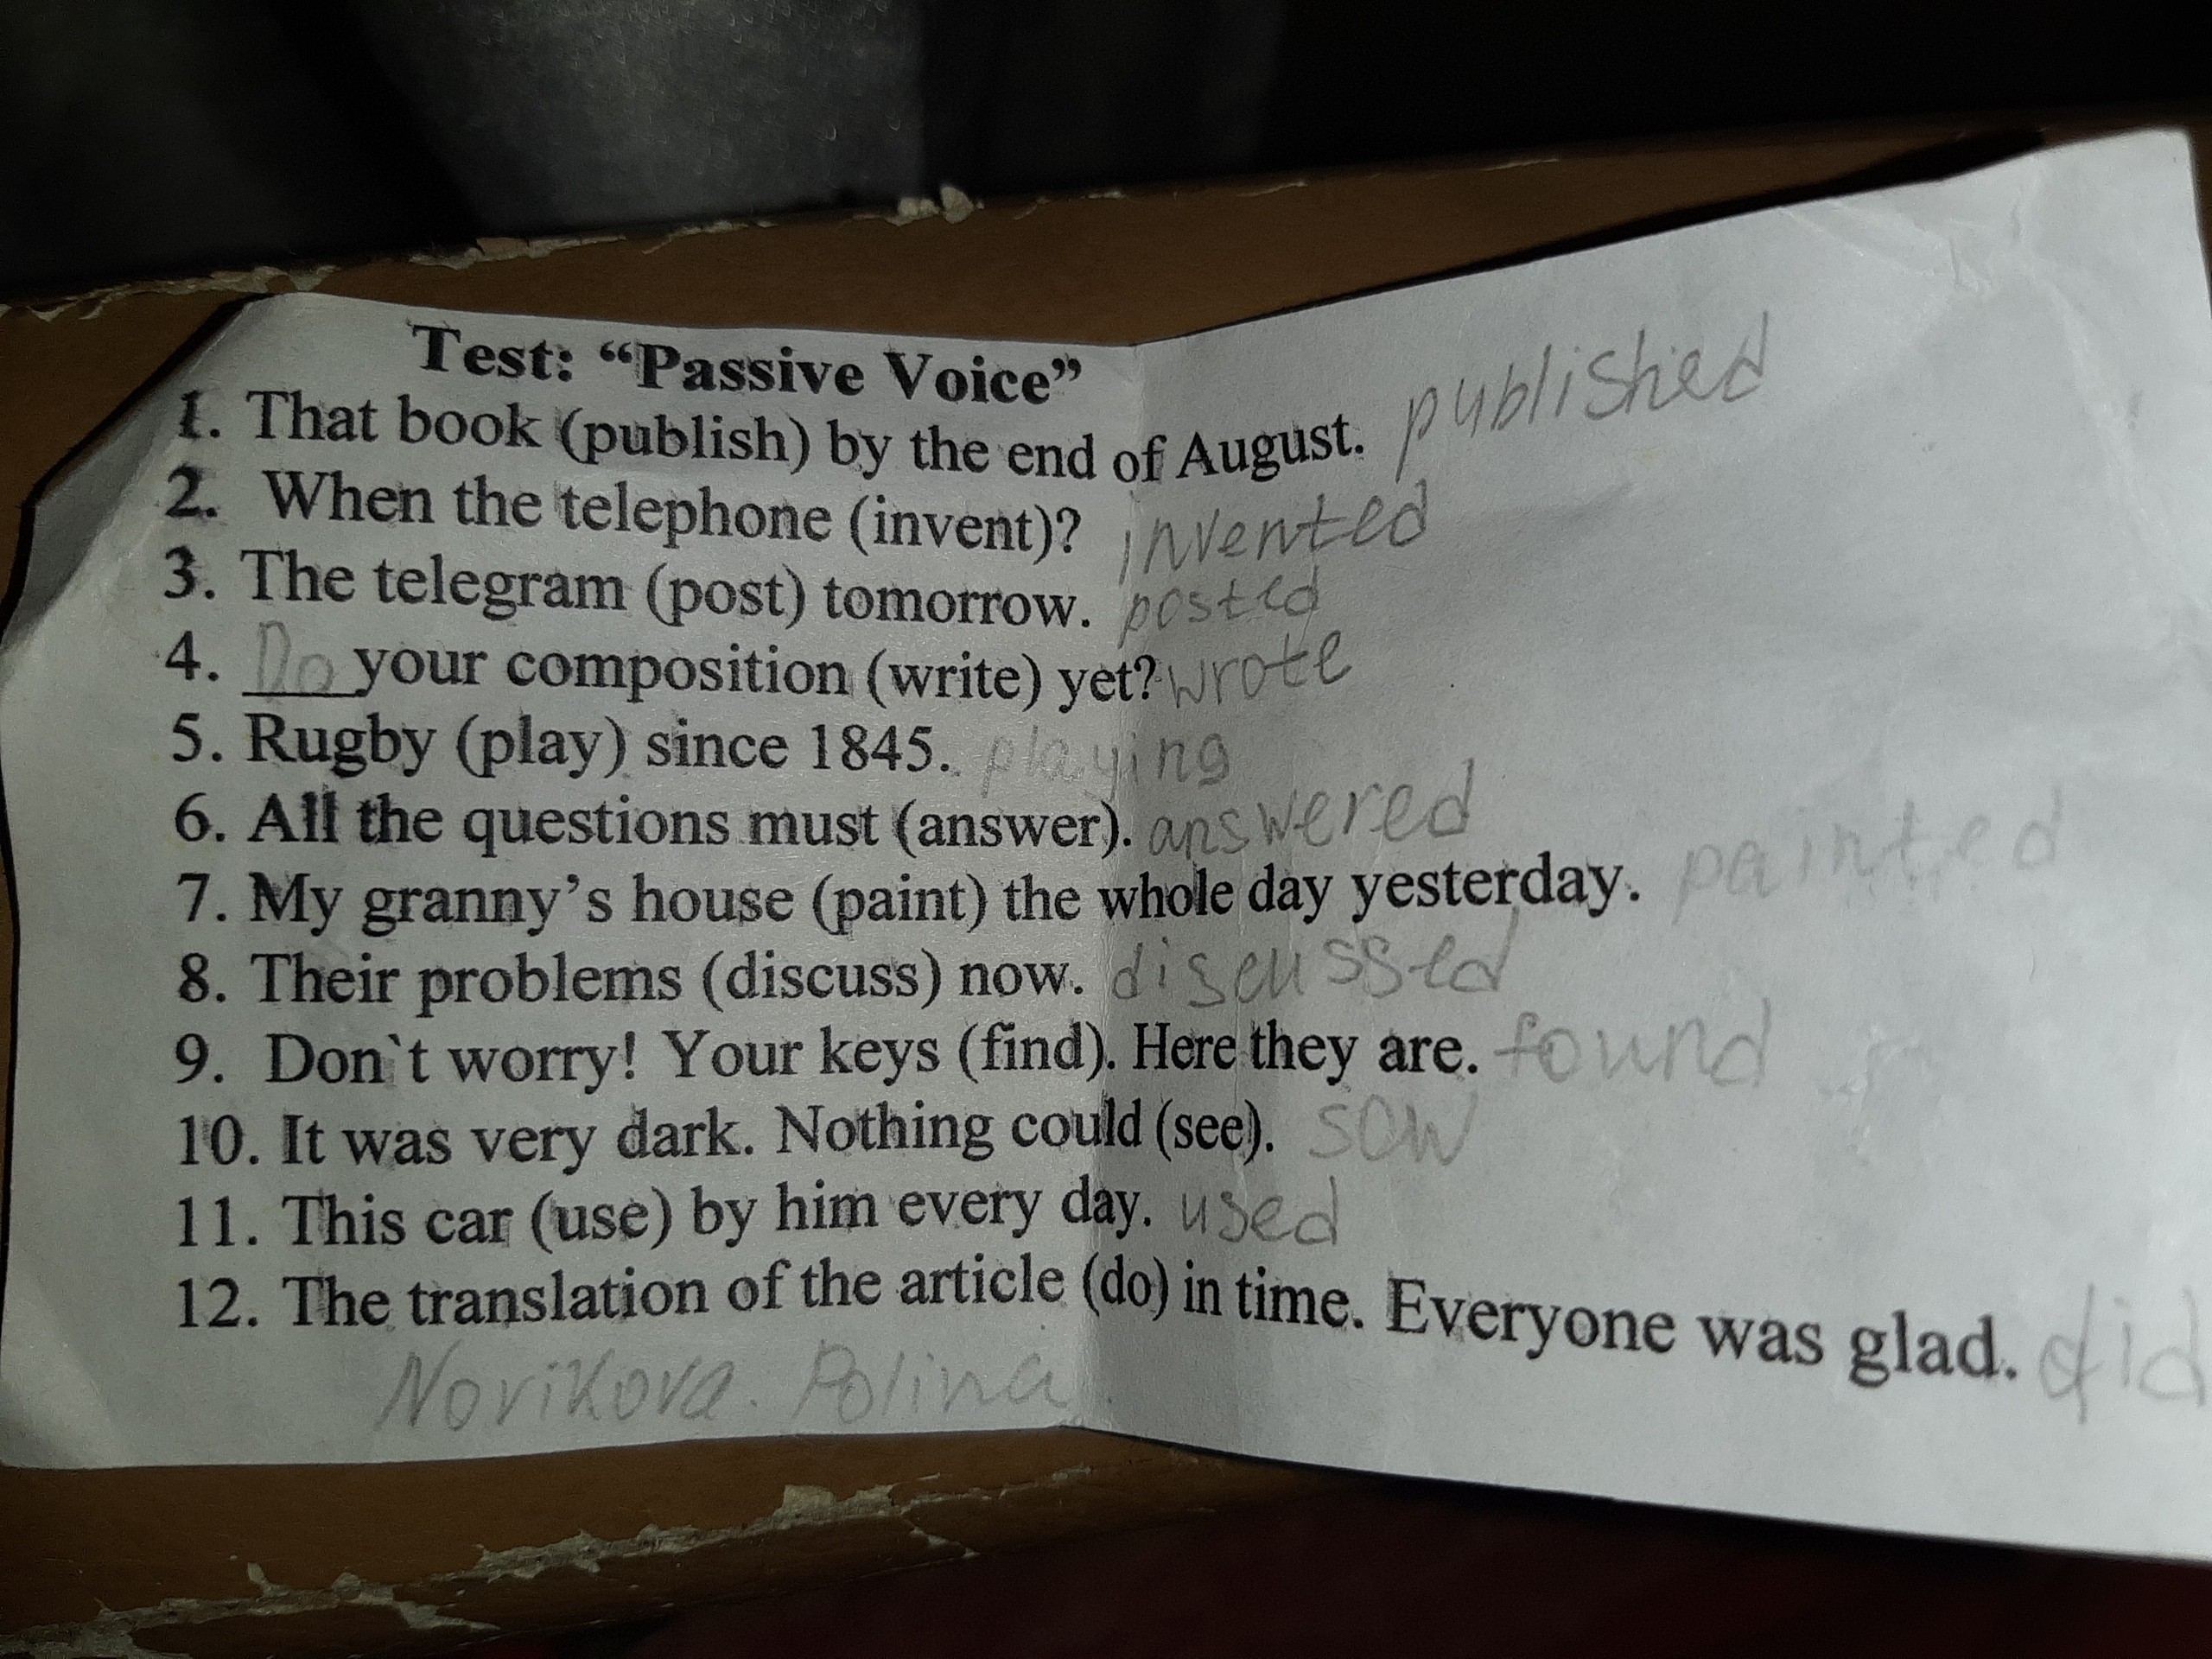 Test: “Passive Voice”
1. That book (publish) by the end of August. published
2. When the telephone (invent)? invented
3. The telegram (post) tomorrow. posted
4. Do your composition (write) yet? wrote
5. Rugby (play) since 1845. playing
6. All the questions must (answer). answered
7. My granny’s house (paint) the whole day yesterday. painted
8. Their problems (discuss) now. discussed
9. Don`t worry! Your keys (find). Here they are. found
10. It was very dark. Nothing could (see). saw
11. This car (use) by him every day. used
12. The translation of the article (do) in time. Everyone was glad. did
Novikova. Polina